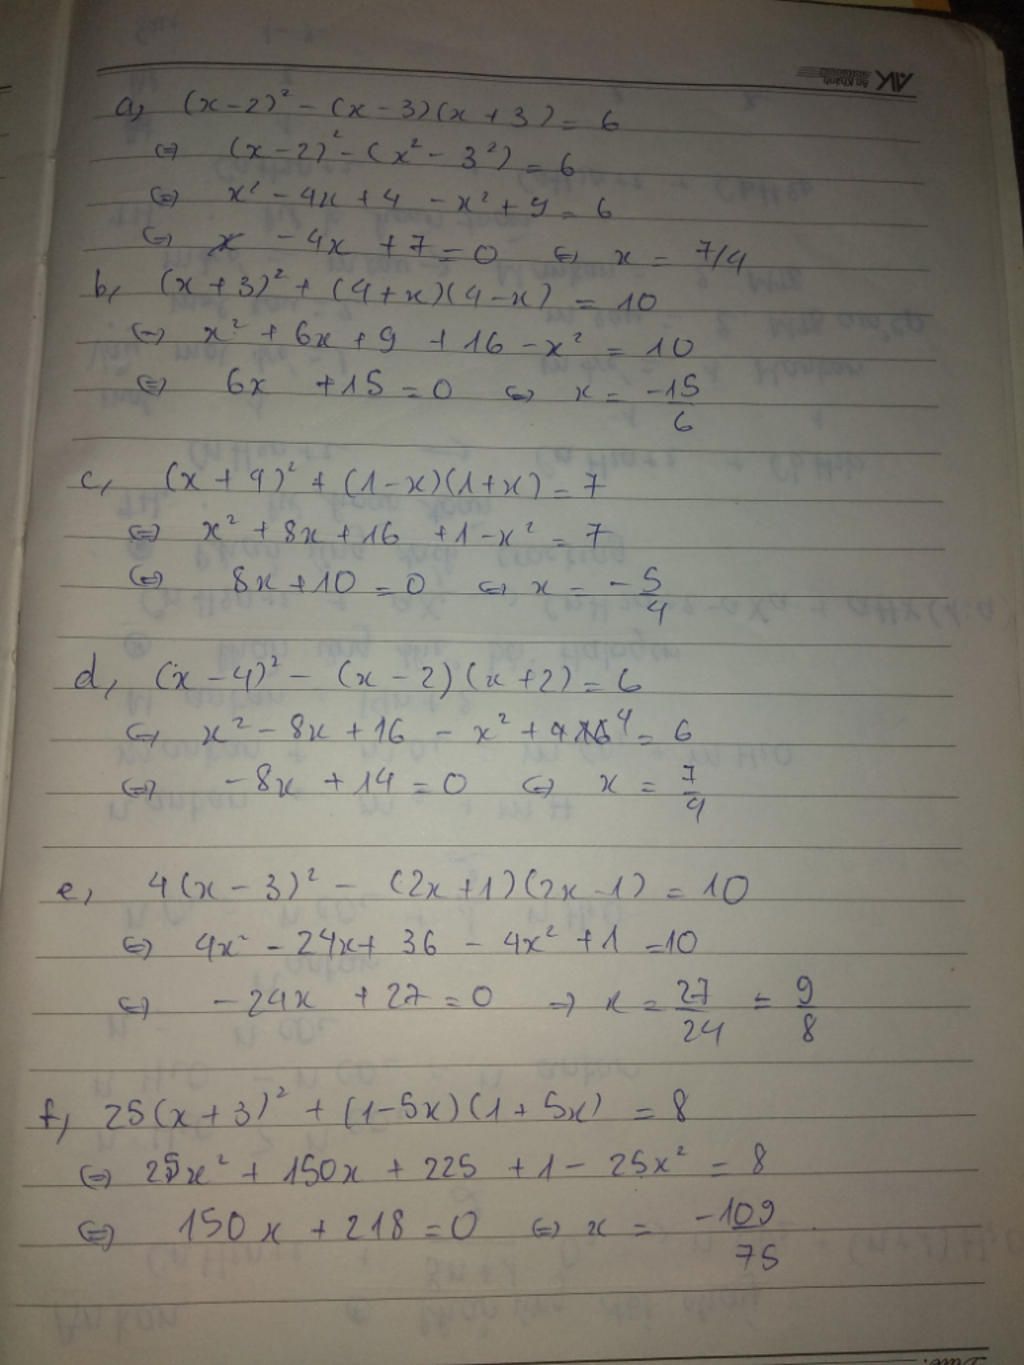 a, (x-2)² - (x-3)(x+3) = 6
⇔ (x-2)² - (x² - 3²) = 6
⇔ x² - 4x + 4 - x² + 9 = 6
⇔ - 4x + 7 = 0 ⇔ x = 7/4
b, (x+3)² + (4+x)(4-x) = 10
⇔ x² + 6x + 9 + 16 - x² = 10
⇔ 6x + 15 = 0 ⇔ x = -15/6
c, (x+4)² + (1-x)(1+x) = 7
⇔ x² + 8x + 16 + 1 - x² = 7
⇔ 8x + 10 = 0 ⇔ x = -5/4
d, (x-4)² - (x-2)(x+2) = 6
⇔ x² - 8x + 16 - x² + 4 = 6
⇔ -8x + 14 = 0 ⇔ x = 7/4
e, 4(x-3)² - (2x+1)(2x-1) = 10
⇔ 4x² - 24x + 36 - 4x² + 1 = 10
⇔ -24x + 27 = 0 ⇒ x = 27/24 = 9/8
f, 25(x+3)² + (1-5x)(1+5x) = 8
⇔ 25x² + 150x + 225 + 1 - 25x² = 8
⇔ 150x + 218 = 0 ⇔ x = -109/75